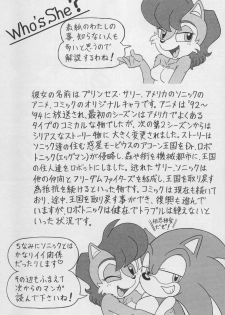 Who's She?
最私のわたしの
事、知らない人も
多いと思うので
解説するわね!
彼女の名前はプリンセス・サリー。
アメリカのソニックの
アニメ、コミックのオリジナルキャラです。アニメは'92～
'94に放送され、最初のシーズンはアメリカでよくある
タイプのコミカルな物でしたが、次の第2シーズンからは
シリアスなストーリー物に大きく変更されました。ストーリーは
ソニック達の住む惑星モービウスのアコーン王国をDr.ロボ
トニック(エッグマン)が侵略し、森や街を機械都市に、王国
の住人達をロボットにしました。逃れたサリー、ソニック
は他の仲間とフリーダムファイターズを結成し、王国を取り戻す
為抵抗を続けるというものです。コミックは現在も続いて
おり、途中、王国を取り戻す事ができ、復興も進んで
いますが、ロボトニックは健在でトラブルは絶えないと
いった状況です。
ちなみにソニックとは
かなりイイ関係
だったりします♡
その辺もふまえて
次からのマンガ
読んで下さいね!
だぜ!